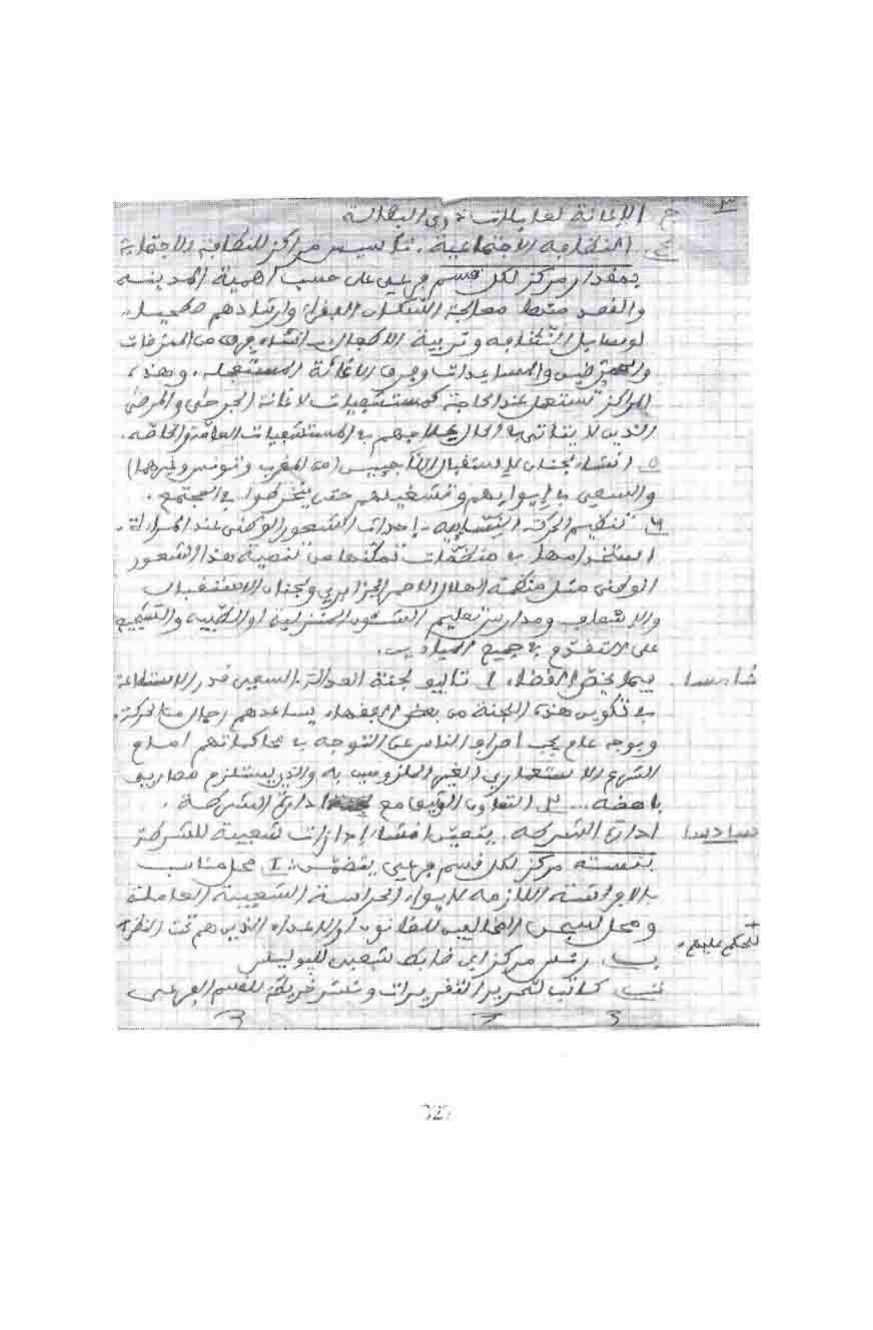 ٣
ج. الإغاثة لعايلات ذوي البطالة
ع. النظافة الاجتماعية. تأسيس مراكز للنظافة الاجتماعية
بمقدار مركز لكل قسم فرعي على حسب أهمية المدينة
والقصد منها معالجة السكان الفقراء وإرشادهم صحيا
لوسايل النظافة وتربية الأطفال. إنشاء فرق من الممرضات
والممرضين والمساعدات وفرق الإغاثة المستعجلة. وهذه
المراكز تستعمل عند الحاجة كمستشفيات لإغاثة الجرحى والمرضى
الذين لا يتأتى في الحال علاجهم في المستشفيات العامة والخاصة.
٥. إنشاء لجنات لاستقبال اللاجئين (من المغرب وتونس وغيرهما)
والسعي في إيوايهم وتشغيلهم حتى ينخرطوا في المجتمع.
٦. تنظيم الحركة النسايية. إحداث الشعور الوطني عند المرأة.
استخدامها في منظمات تمكنها من تنمية هذا الشعور
الوطني مثل منظمة الهلال الأحمر الجزايري ولجنات الاستقبال
والإسعاف ومدارس تعليم الشئون المنزلية أو الطبية والتشجيع
على التقدم في جميع الميادين.
خامسا. فيما يخص القضاء ١. تأليف لجنة العدالة. السعي قدر الاستطاعة
في تكوين هذه اللجنة من بعض الفقهاء يساعدهم رجال من الحركة.
وبوجه عام يجب إحراج الناس عن التوجه في محاكماتهم أمام
الشرع الاستعماري الغير الملزومين به والذي يستلزم مصاريف
باهضة... ٢. التعاون الوثيق مع إدارة الشرطة.
سادسا إدارة الشرطة. يتعين إنشاء إدارات شعبية للشرطة
بنسبة مركز لكل قسم فرعي يتضمن: ١. محل مناسب
بالأفرشة اللازمة لإيواء الحراسة الشعبية العاملة
ومحل لسجن المخالفين للقانون أو الأعداء الذين هم تحت النظر +
+ للحكم عليهم.
ب. رئيس مركز أي ضابط شعبي للبوليس
كاتب لتحرير التقريرات ونشر خريطة للقسم الفرعي